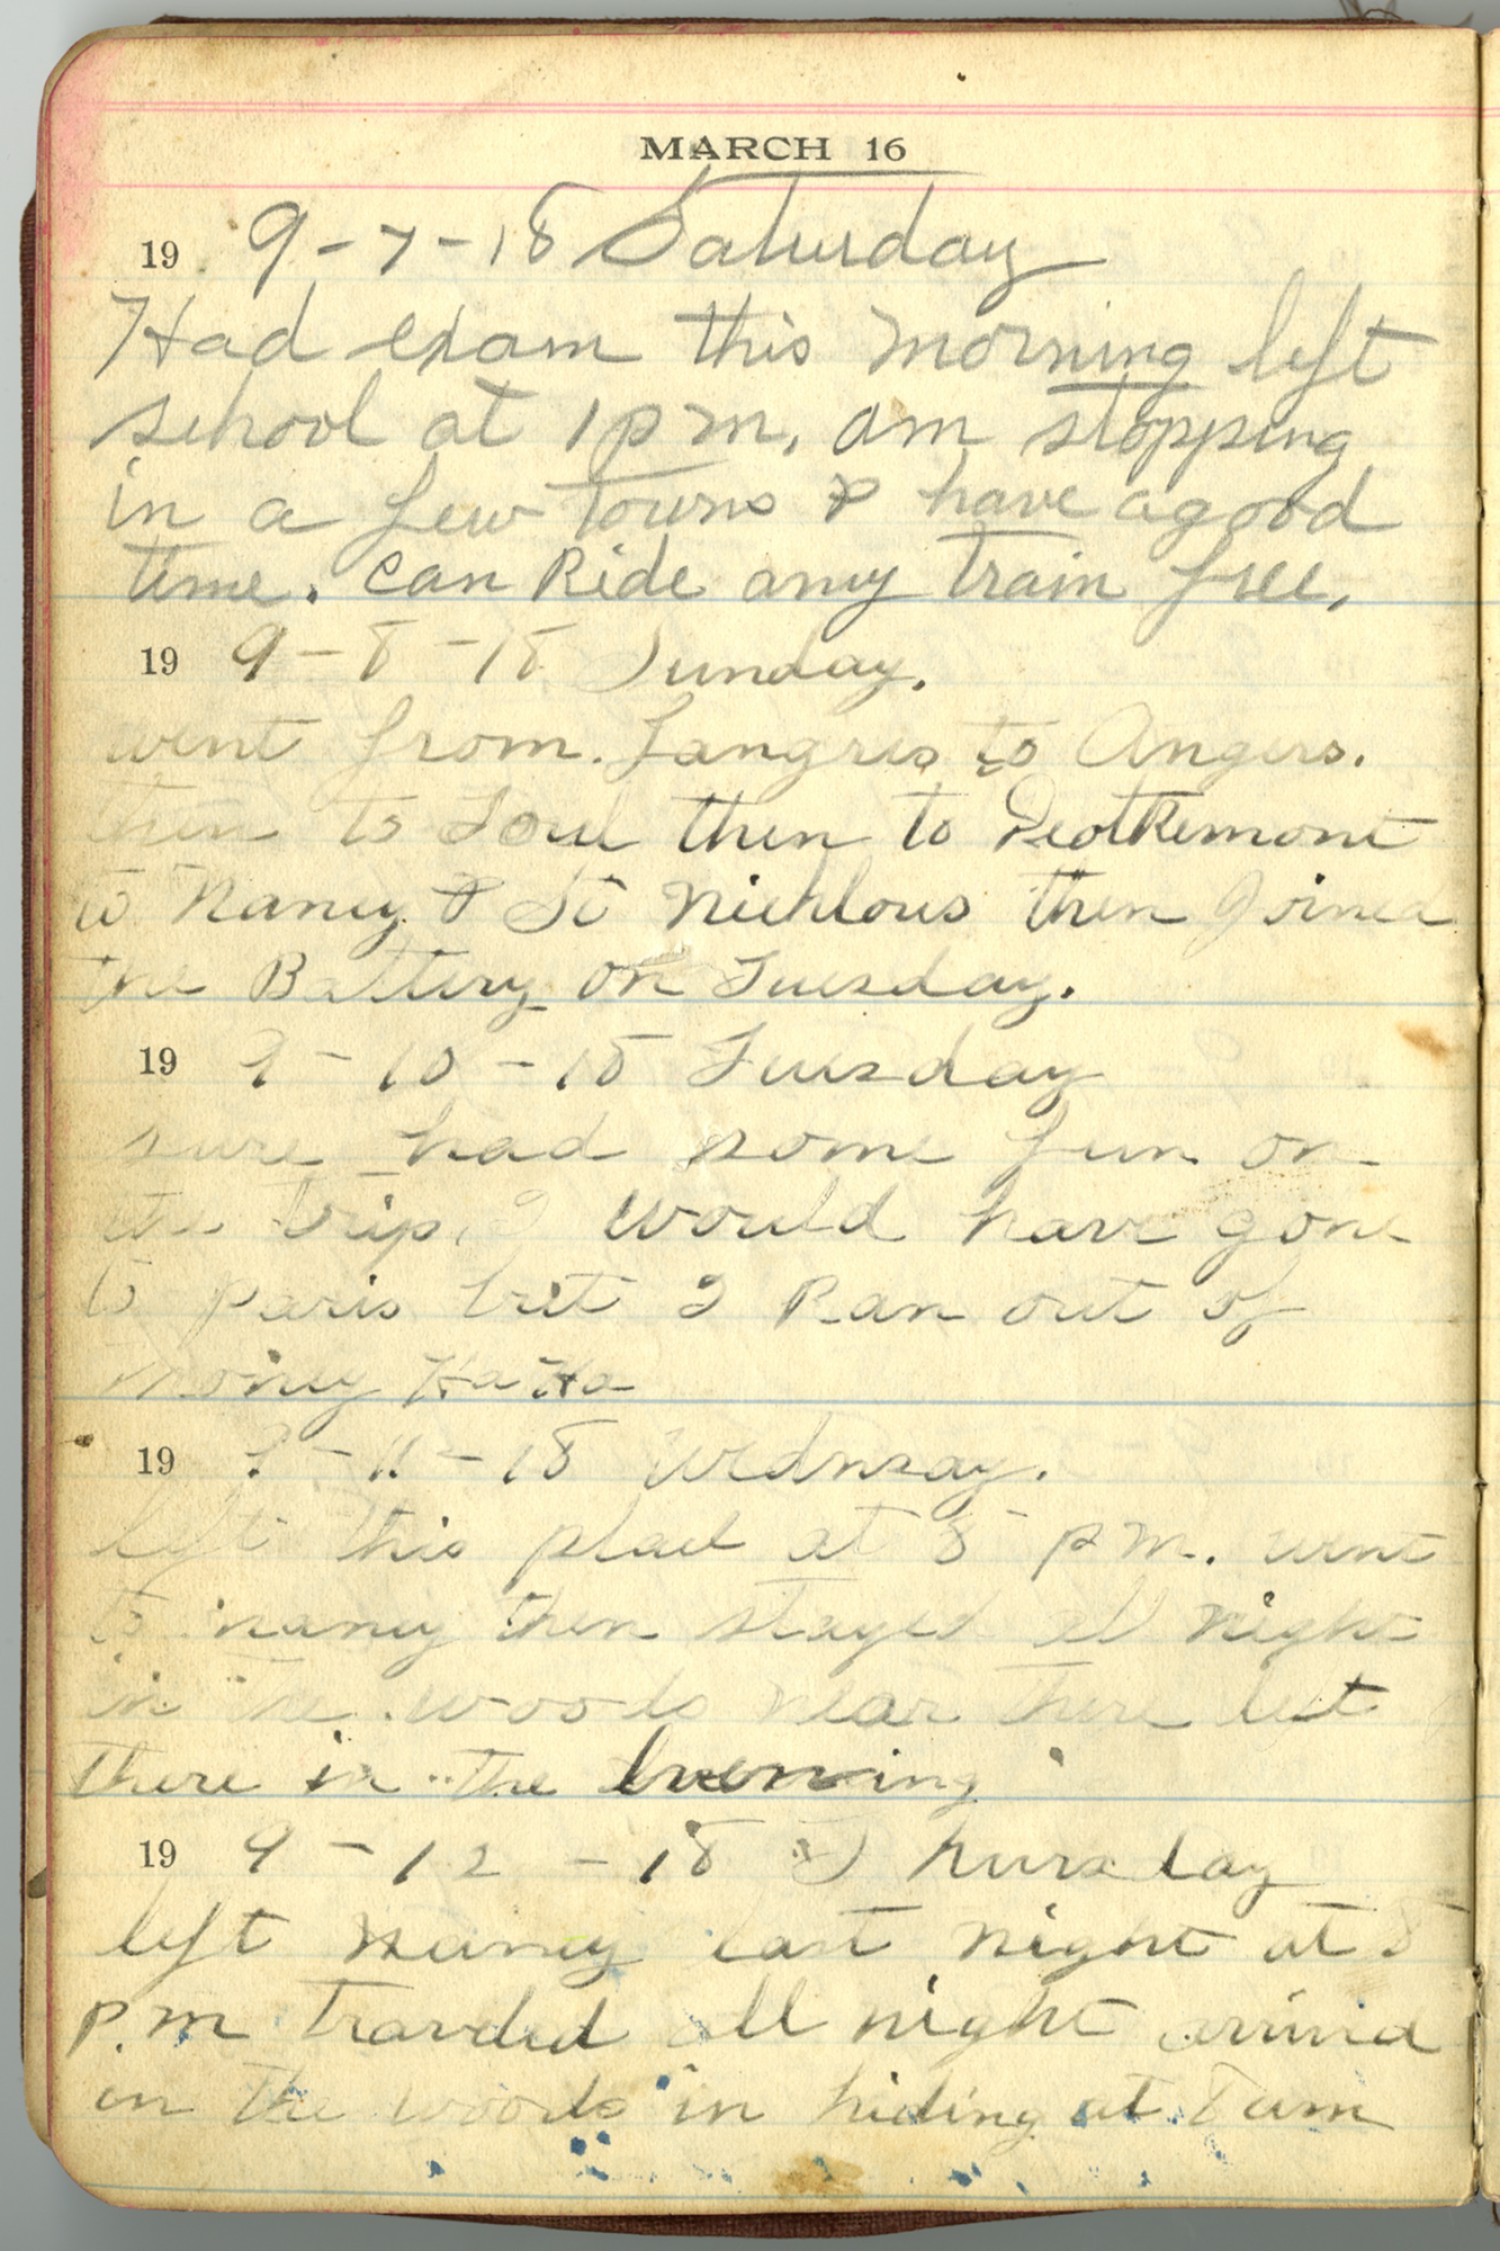 MARCH 16
19 9-7-18 Saturday
Had exam this morning left
school at 1 pm, am stopping
in a few towns & have a good
time. can Ride any train free,
19 9-8-18 Sunday.
went from Langres to Angers.
then to Toul then to
to Nancy & St Nichlous then Joined
the Battery on Tuesday.
19 9-10-18 Tuesday
sure had some fun on
the trip, I would have gone
to paris but I Ran out of
money Ha Ha
19 9-11-18 Wednsay.
left this place at 8 pm. went
to nancy then stayed all night
in the woods near there left
there in the evening
19 9-12-18 Thursday
left nancy last night at 8
p.m traveled all night arrived
in the woods in hiding at am